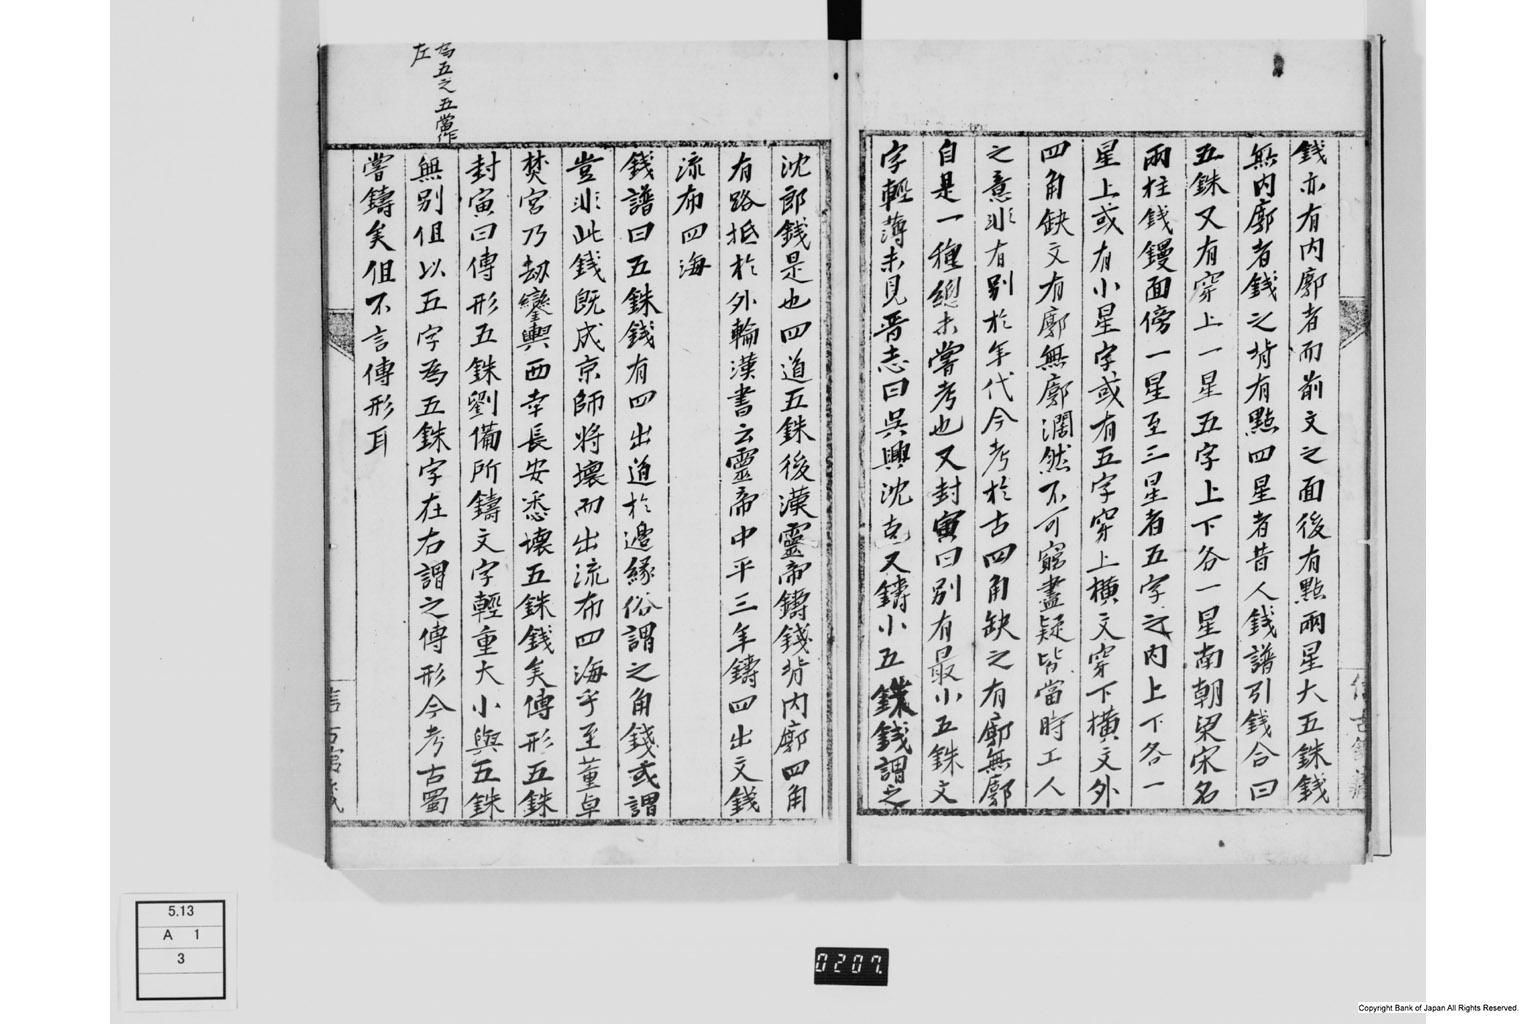 錢亦有内廓者而前文之面後有點兩星大五銖錢
無内廓者錢之背有點四星者昔人錢譜引錢合曰
五銖又有穿上一星五字上下各一星南朝梁宋名
兩柱錢鏝面傍一星至三星者五字之内上下各一
星上或有小星字或有五字穿上横文穿下横文外
四角缺文有廓無廓濶然不可窮盡疑皆當時工人
之意非有别於年代今考於古四角缺之有廓無廓
自是一種總未嘗考也又封寅曰别有最小五銖文
字輕薄未見晋志曰吳興沈充又鑄小五銖錢謂之
沈郎錢是也四道五銖後漢靈帝鑄錢背内廓四角
有路抵於外輪漢書云靈帝中平三年鑄四出文錢
流布四海
錢譜曰五銖錢有四出道於邊緣俗謂之角錢或謂
豈非此錢既成京師将壞而出流布四海乎至董卓
焚宮乃劫鑾輿西幸長安悉壞五銖錢矣傳形五銖
封寅曰傳形五銖劉備所鑄文字輕重大小與五銖
無别但以五字為五銖字在右謂之傳形今考古蜀
嘗鑄矣但不言傳形耳
為五之五當作
左
5.13
A 1
3
0207.
Copyright Bank of Japan All Rights Reserved.